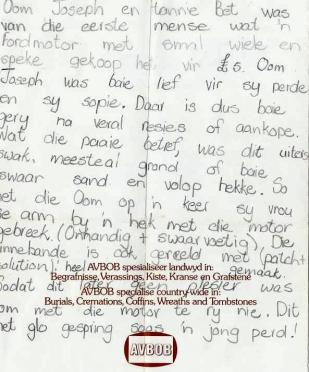 Oom Joseph en tannie Bet was
van die eerste mense wat 'n
Fordmotor met smal wiele en
speke gekoop het vir £5. Oom
Joseph was baie lief vir sy perde
en sy sopie. Daar is dus baie
gery na veral resies of aankope.
Wat die paaie betref, was dit uiters
swak, meesteal grond of baie
swaar sand en volop hekke. So
het die Oom op 'n keer sy vrou
se arm by 'n hek met die motor
gebreek. (Onhandig + swaarvoetig). Die
binnebande is ook gereeld met (patch+
solution) heel gemaak.
AVBOB spesialiseer landwyd in:
Begrafnisse, Verassings, Kiste, Kranse en Grafstene
sodat dit later geen plesier was
AVBOB specialise country-wide in:
Burials, Cremations, Coffins, Wreaths and Tombstones
om met die motor te ry nie. Dit
het glo gespring soos 'n jong perd!
AVBOB